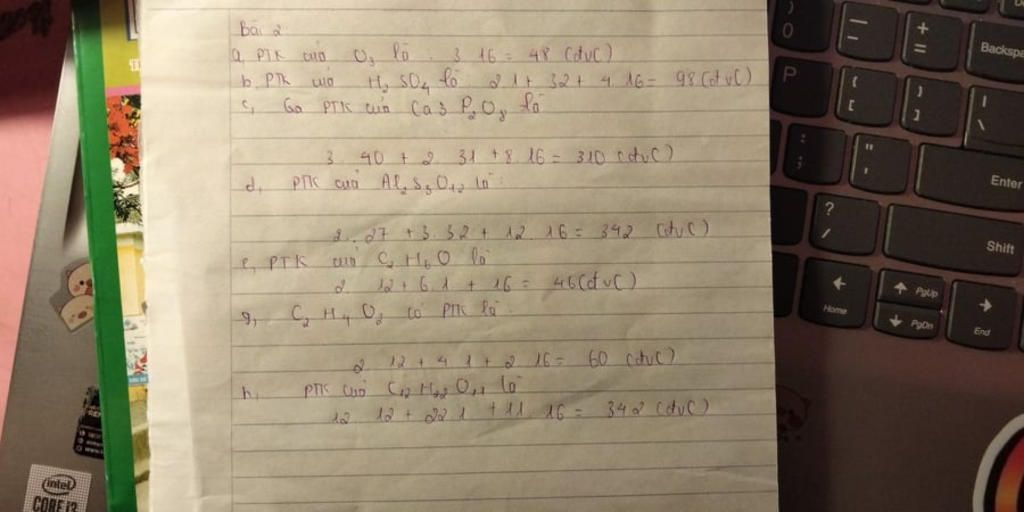 Bài 2
a, PTK của O3 là : 3.16 = 48 (đvC)
b, PTK của H2SO4 là 2.1 + 32 + 4.16 = 98 (đvC)
c, PTK của Ca3P2O8 là
3.40 + 2.31 + 8.16 = 310 (đvC)
d, PTK của Al2S3O12 là :
2.27 + 3.32 + 12.16 = 342 (đvC)
e, PTK của C2H6O là
2.12 + 6.1 + 16 = 46 (đvC)
g, C2H4O2 có PTK là :
2.12 + 4.1 + 2.16 = 60 (đvC)
h, PTK của C12H22O11 là
12.12 + 22.1 + 11.16 = 342 (đvC)
)
0
_
-
+
=
Backspa
P
{
[
}
]
|
\
:
;
"
'
Enter
?
/
Shift
Home
PgUp
PgDn
End
intel
CORE i3